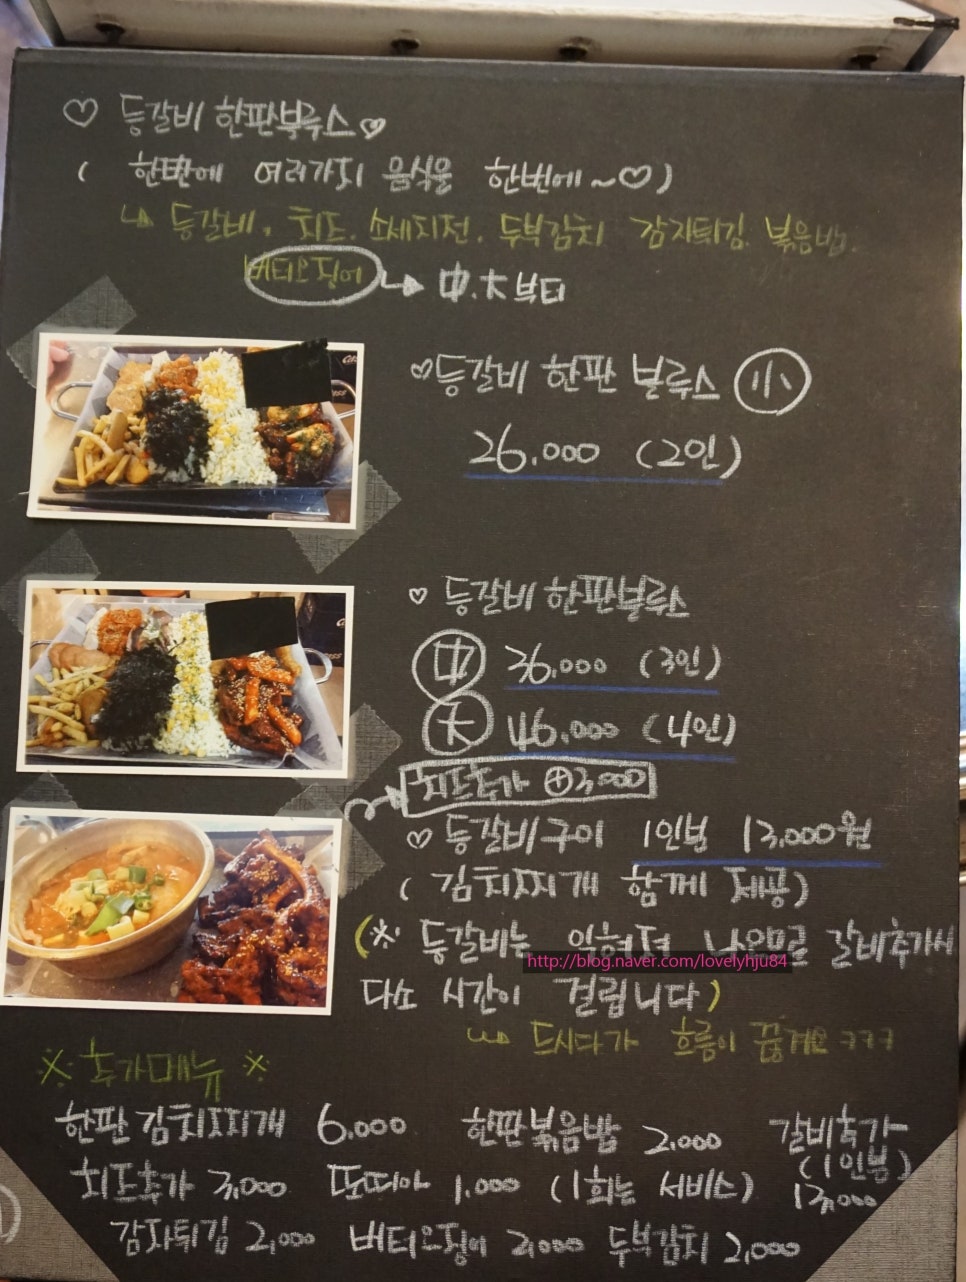 ♡ 등갈비 한판블루스♡
( 한판에 여러가지 음식을 한번에~♡)
↳ 등갈비. 치즈. 소세지전. 두부김치 감자튀김. 볶음밥.
버터오징어 → 中.大부터
♡등갈비 한판 블루스 小
26.000 (2인)
♡ 등갈비 한판블루스
中 36.000 (3인)
大 46.000 (4인)
치즈추가 ⊕3.000
♡ 등갈비구이 1인분 13,000원
( 김치찌개 함께 제공)
(※ 등갈비는 익혀져 나오므로 갈비추가시
http://blog.naver.com/lovelyhju84
다소 시간이 걸립니다)
드시다가 흐름이 끊겨요 ㅋㅋㅋ
※ 추가메뉴 ※
한판김치찌개 6.000 한판볶음밥 2.000 갈비추가
(1인분)
치즈추가 3,000 또띠아 1.000 (1회는 서비스) 13,000
감자튀김 2,000 버터오징어 2,000 두부김치 2,000